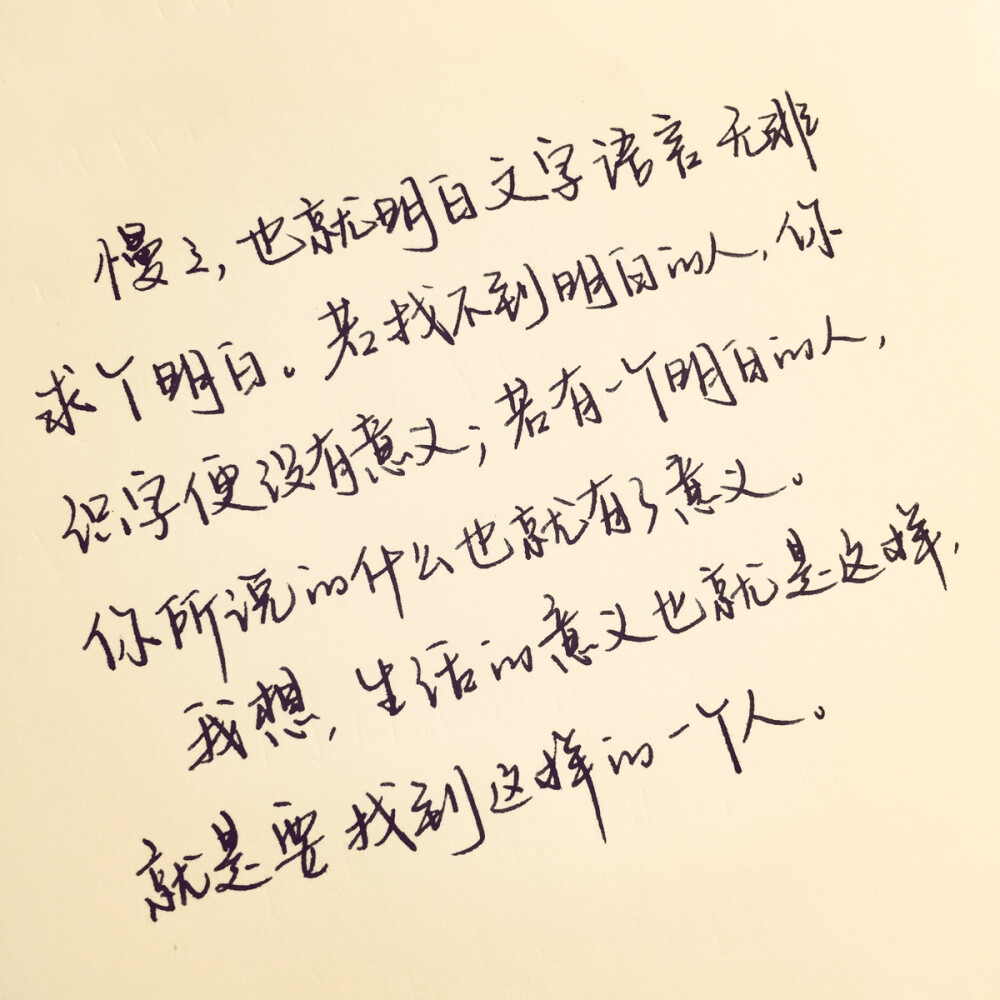 慢々,也就明白文字语言无非
求个明白。若找不到明白的人,你
识字便没有意义;若有一个明白的人,
你所说的什么也就有了意义。
我想,生活的意义也就是这样,
就是要找到这样的一个人。